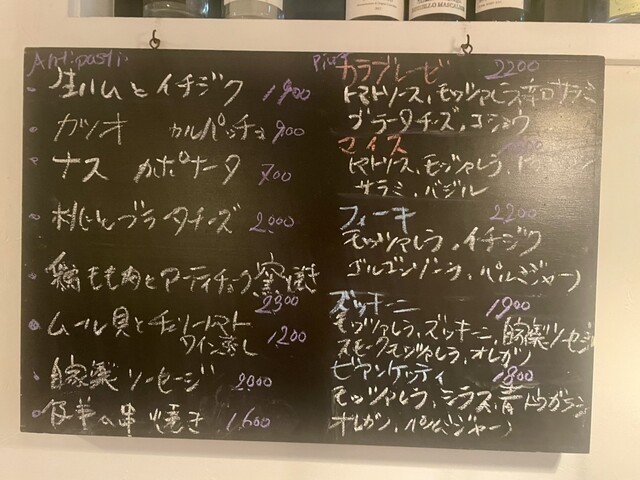 Antipasti
生ハムとイチジク 1900
カツオ カルパッチョ 900
ナス カポナータ 700
桃とブラータチーズ 2000
鶏もも肉とアーティチョク窯焼き
2300
ムール貝とチェリートマト
ワイン蒸し 1200
自家製ソーセージ 2000
仔羊の串焼き 1600
カラブレーゼ 2200
トマトソース、モッツァレラ、辛口サラミ
ブラータチーズ、コショウ
マイス
トマトソース、モッツァレラ、
サラミ、バジル
フィーキ 2200
モッツァレラ、イチジク
ゴルゴンゾーラ、パルミジャーノ
ズッキーニ 1900
モッツァレラ、ズッキーニ、自家製ソーセージ
スモークモッツァレラ、オレガノ
ビアンケッティ 1800
モッツァレラ、シラス、青トウガラシ
オレガノ、パルミジャーノ